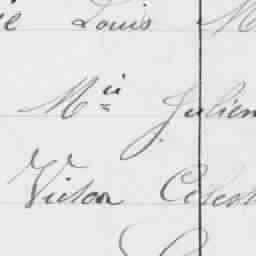 Louis M
Mii Julien
Victor Celest